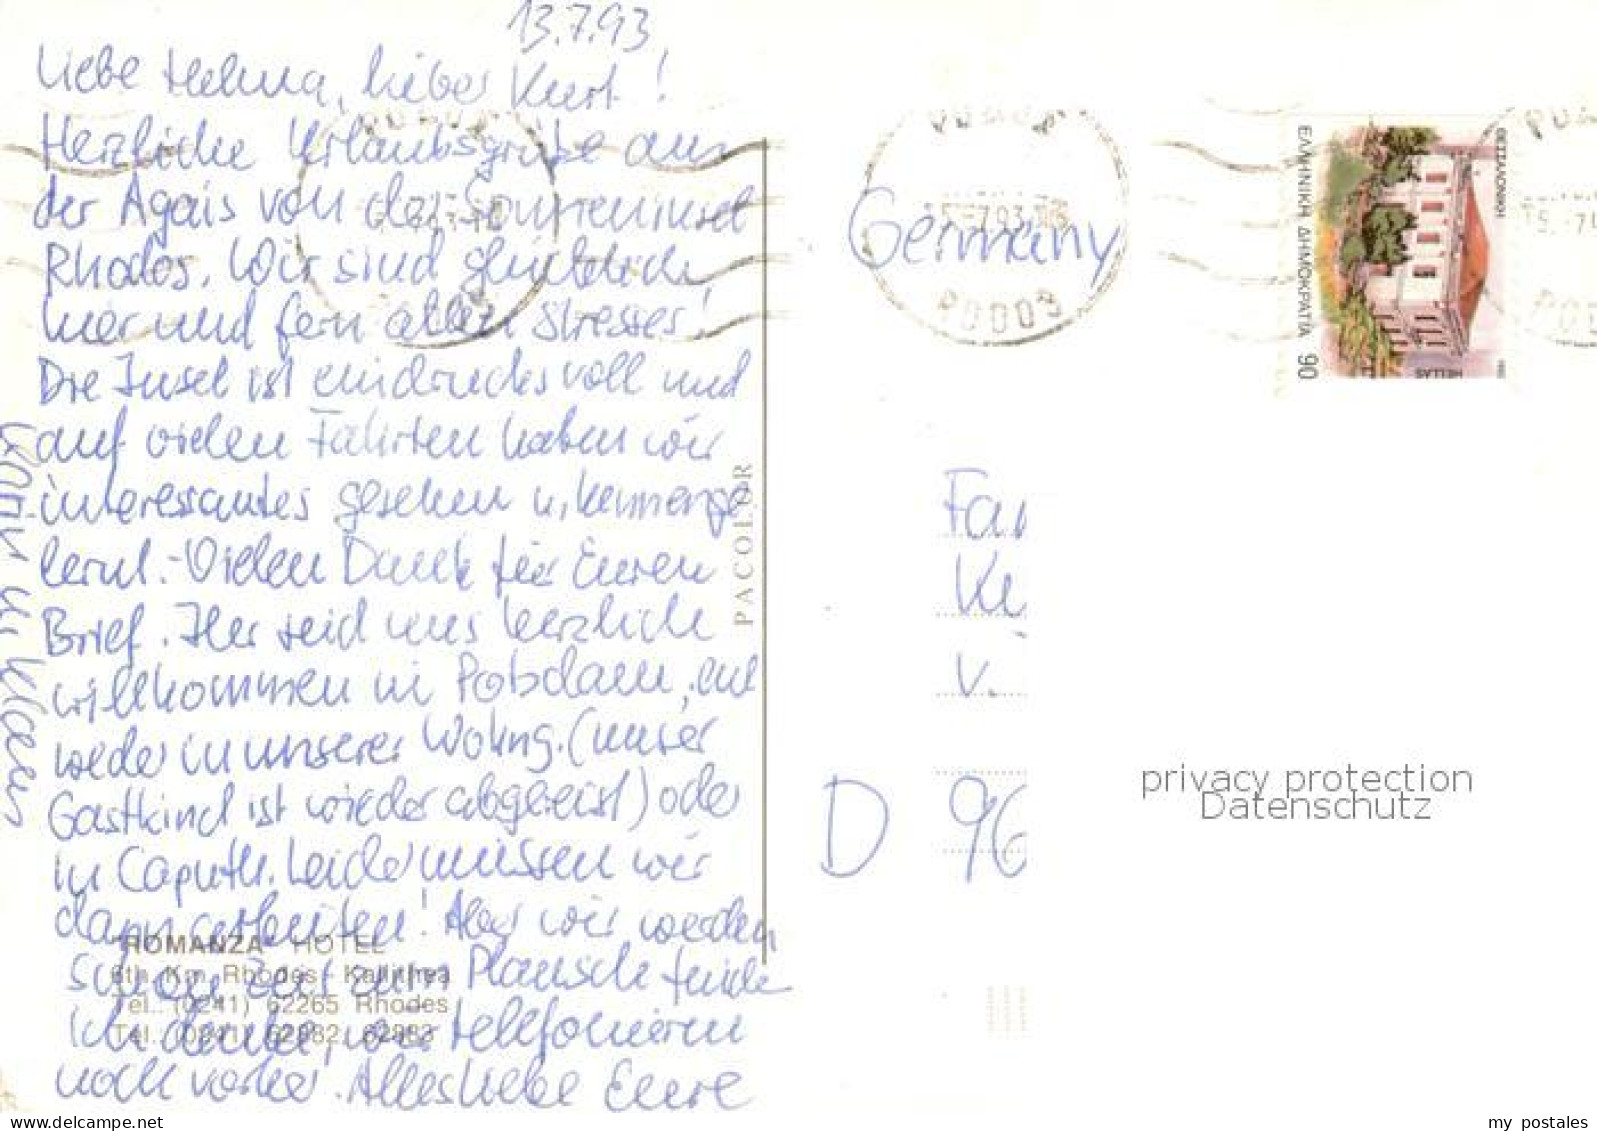 13.7.93
Liebe Helma, lieber Kurt!
Herzliche Urlaubsgrüße aus
der Ägäis von der Sonneninsel
Rhodos. Wir sind glücklich
hier und fern allen Stresses!
Die Insel ist eindrucksvoll und
auf vielen Fahrten haben wir
interessantes gesehen u. kennenge
lernt. - Vielen Dank für Euren
Brief. Ihr seid uns herzlich
willkommen in Potsdam, ent
weder in unserer Wohng. (unser
Gastkind ist wieder abgereist) oder
in Caputh. Leider müssen wir
dann arbeiten! Aber wir werden
schon Zeit zum Plausch finden
Ich denke, wir telefonieren
noch vorher. Alles Liebe Eure
u. Klaus
"ROMANZA" HOTEL
6th. Km. Rhodes - Kallithea
Tel.. (0241) 62265 Rhodes
Tel.. (0241) 62882, 62883
PACOLOR
ΡΟΔΟΣ
Germany
ΕΛΛΗΝΙΚΗ ΔΗΜΟΚΡΑΤΙΑ 90
ΘΕΣΣΑΛΟΝΙΚΗ
HELLAS
Fa
Ku
v.
D 96
privacy protection
Datenschutz
www.delcampe.net
my_postales